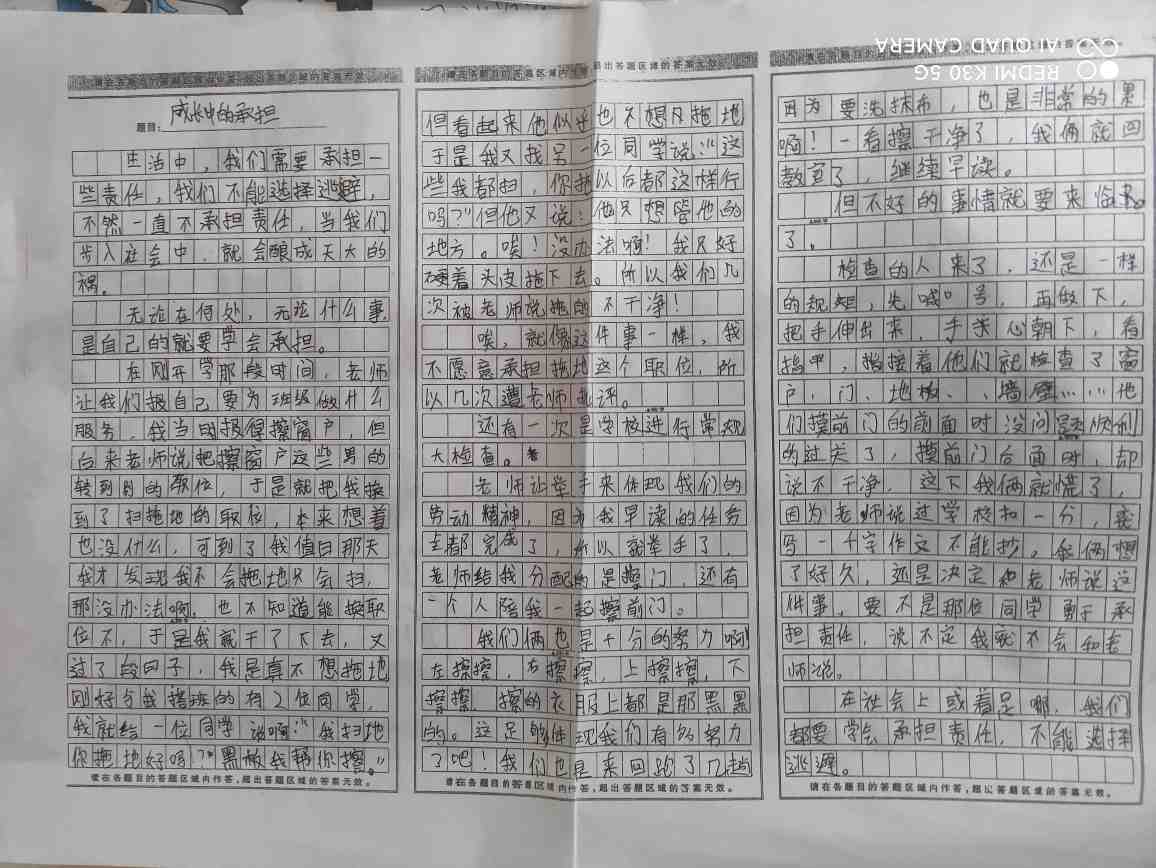 AI QUAD CAMERA
REDMI K30 5G
请在各题目的答题区域内作答,超出答题区域的答案无效。
题目:成长中的承担
生活中,我们需要承担一
些责任,我们不能选择逃避,
不然一直不承担责任,当我们
步入社会中,就会酿成天大的
祸。
无论在何处,无论什么事,
是自己的就要学会承担。
在刚开学那段时间,老师
让我们报自己要为班级做什么
服务,我当时报得擦窗户,但
后来老师说把擦窗户这些男的
转到别的职位,于是就把我换
到了扫拖地的职位,本来想着
也没什么,可到了我值日那天
我才发现我不会拖地只会扫,
那没办法啊,也不知道能换职
位不,于是我就干了下去,又
过了段日子,我是真不想拖地
刚好与我搭班的有2位同学,
我就给一位同学说啊:“我扫地
你拖地好吗?”黑板我帮你擦。”
请在各题目的答题区域内作答,超出答题区域的答案无效。
请在各题目的答题区域内作答,超出答题区域的答案无效。
但看起来他似乎也不想只拖地
于是我又找另一位同学说:“这
些我都扫,你拖以后都这样行
吗?”但他又说:他只想管他的
地方。唉!没办法啊!我只好
硬着头皮拖下去。所以我们几
次被老师说拖的不干净!
唉,就像这件事一样,我
不愿意承担拖地这个职位,所
以几次遭老师批评。
还有一次是学校进行常规
大检查。
老师让举手来体现我们的
劳动精神,因为我早读的任务
全都完成了,所以就举手了,
老师给我分配的是擦门,还有
一个人陪我一起擦前门。
我们俩也是十分的努力啊!
左擦擦,右擦擦,上擦擦,下
擦擦,擦的衣服上都是那黑黑
的。这足够体现我们有多努力
了吧!我们也是来回跑了几趟
请在各题目的答题区域内作答,超出答题区域的答案无效。
因为要洗抹布,也是非常的累
啊!一看擦干净了,我俩就回
教室了,继续早读。
但不好的事情就要来临
了。
检查的人来了,还是一样
的规矩,先喊口号,再做下,
把手伸出来,手心朝下,看
指甲,接着他们就检查了窗
户,门、地板、墙壁……他
们摸前门的前面时没问题顺利
的过关了,摸前门后面时,却
说不干净,这下我俩就慌了,
因为老师说过学校扣一分,要
写一千字作文不能抄。我俩想
了好久,还是决定和老师说这
件事,要不是那位同学勇于承
担责任,说不定我就不会和老
师说。
在社会上或着是哪,我们
都要学会承担责任,不能选择
逃避。
请在各题目的答题区域内作答,超出答题区域的答案无效。